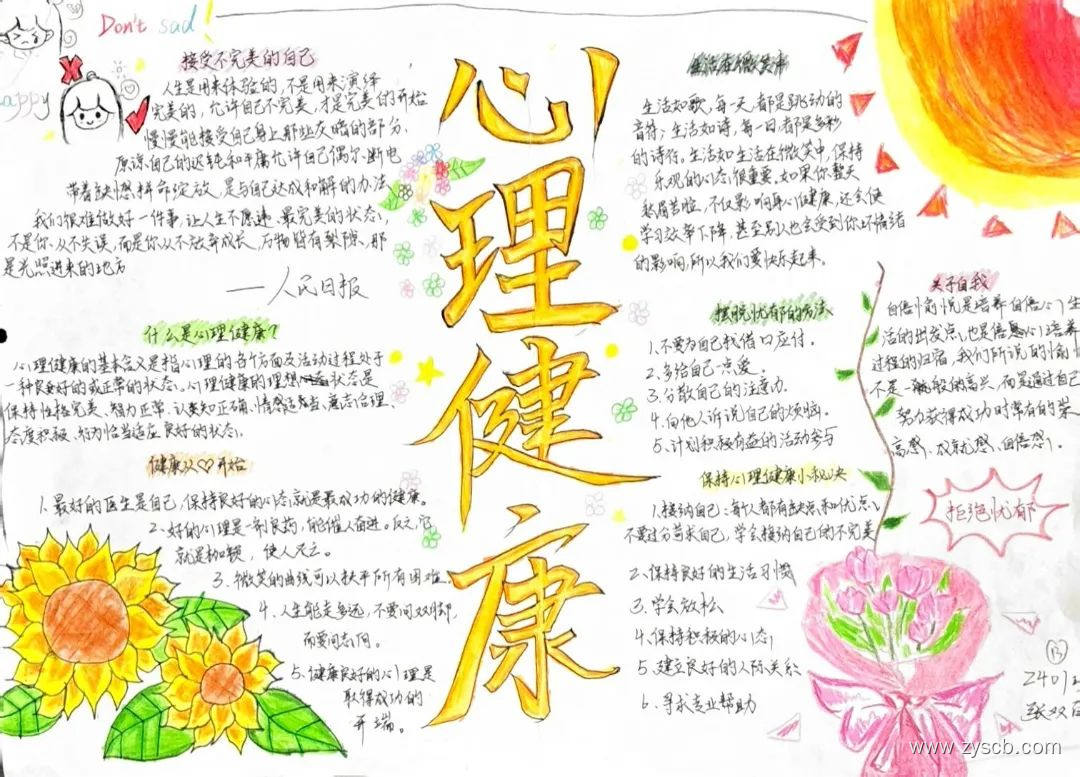 Don't sad!
appy
接受不完美的自己
人生是用来体验的,不是用来演绎
完美的,允许自己不完美,才是完美的开始
慢慢能接受自己身上那些灰暗的部分、
原谅自己的迟钝和平庸允许自己偶尔断电
带着缺憾拼命绽放,是与自己达成和解的办法
我们很难做好一件事,让人生不留遗 最完美的状态,
不是你从不失误,而是你从不放弃成长,万物皆有裂隙、那
是光照进来的地方
——人民日报
什么是心理健康?
心理健康的基本含义是指心理的各个方面及活动过程处于
一种良好的或正常的状态。心理健康的理想状态是
保持性格完美、智力正常、认知正确、情感适当、意志合理、
态度积极、行为恰当适应良好的状态。
健康从♡开始
1.最好的医生是自己,保持良好的心态,就是最成功的健康。
2.好的心理是一剂良药,能催人奋进。反之,它
就是枷锁,使人
3.微笑的曲线可以扶平所有困难
4.人生能走多远,不要问双脚,
而要问志向。
5.健康良好的心理是
取得成功的
开端。
心理健康
生活在微笑中
生活如歌,每一天,都是跳动的
音符;生活如诗,每一日,都是多彩
的诗行。生活如生活在微笑中,保持
乐观的心态很重要。如果你整天
愁眉苦脸,不仅影响身心健康,还会使
学习效率下降,甚至别人也会受到你坏情绪
的影响,所以我们要快乐起来。
摆脱忧郁的方法
1.不要为自己找借口应付。
2.多给自己一点爱。
3.分散自己的注意力.
4.向他人诉说自己的烦恼。
5.计划积极有益的活动参与
保持心理健康小秘诀
1.接纳自己:每个人都有缺点和优点,
不要过分苛求自己,学会接纳自己的不完美
2.保持良好的生活习惯
3.学会放松
4.保持积极的心态
5.建立良好的人际关系
6.寻求专业帮助
关于自我
自信愉悦是培养自信心,生
活的出发点,也是信心培养
过程的归宿,我们所说的愉悦
不是一般的高兴,而是通过自己
努力获得成功时常有的荣
高感,成就感,自信感。
拒绝忧郁
2401
张双
www.zyscb.com